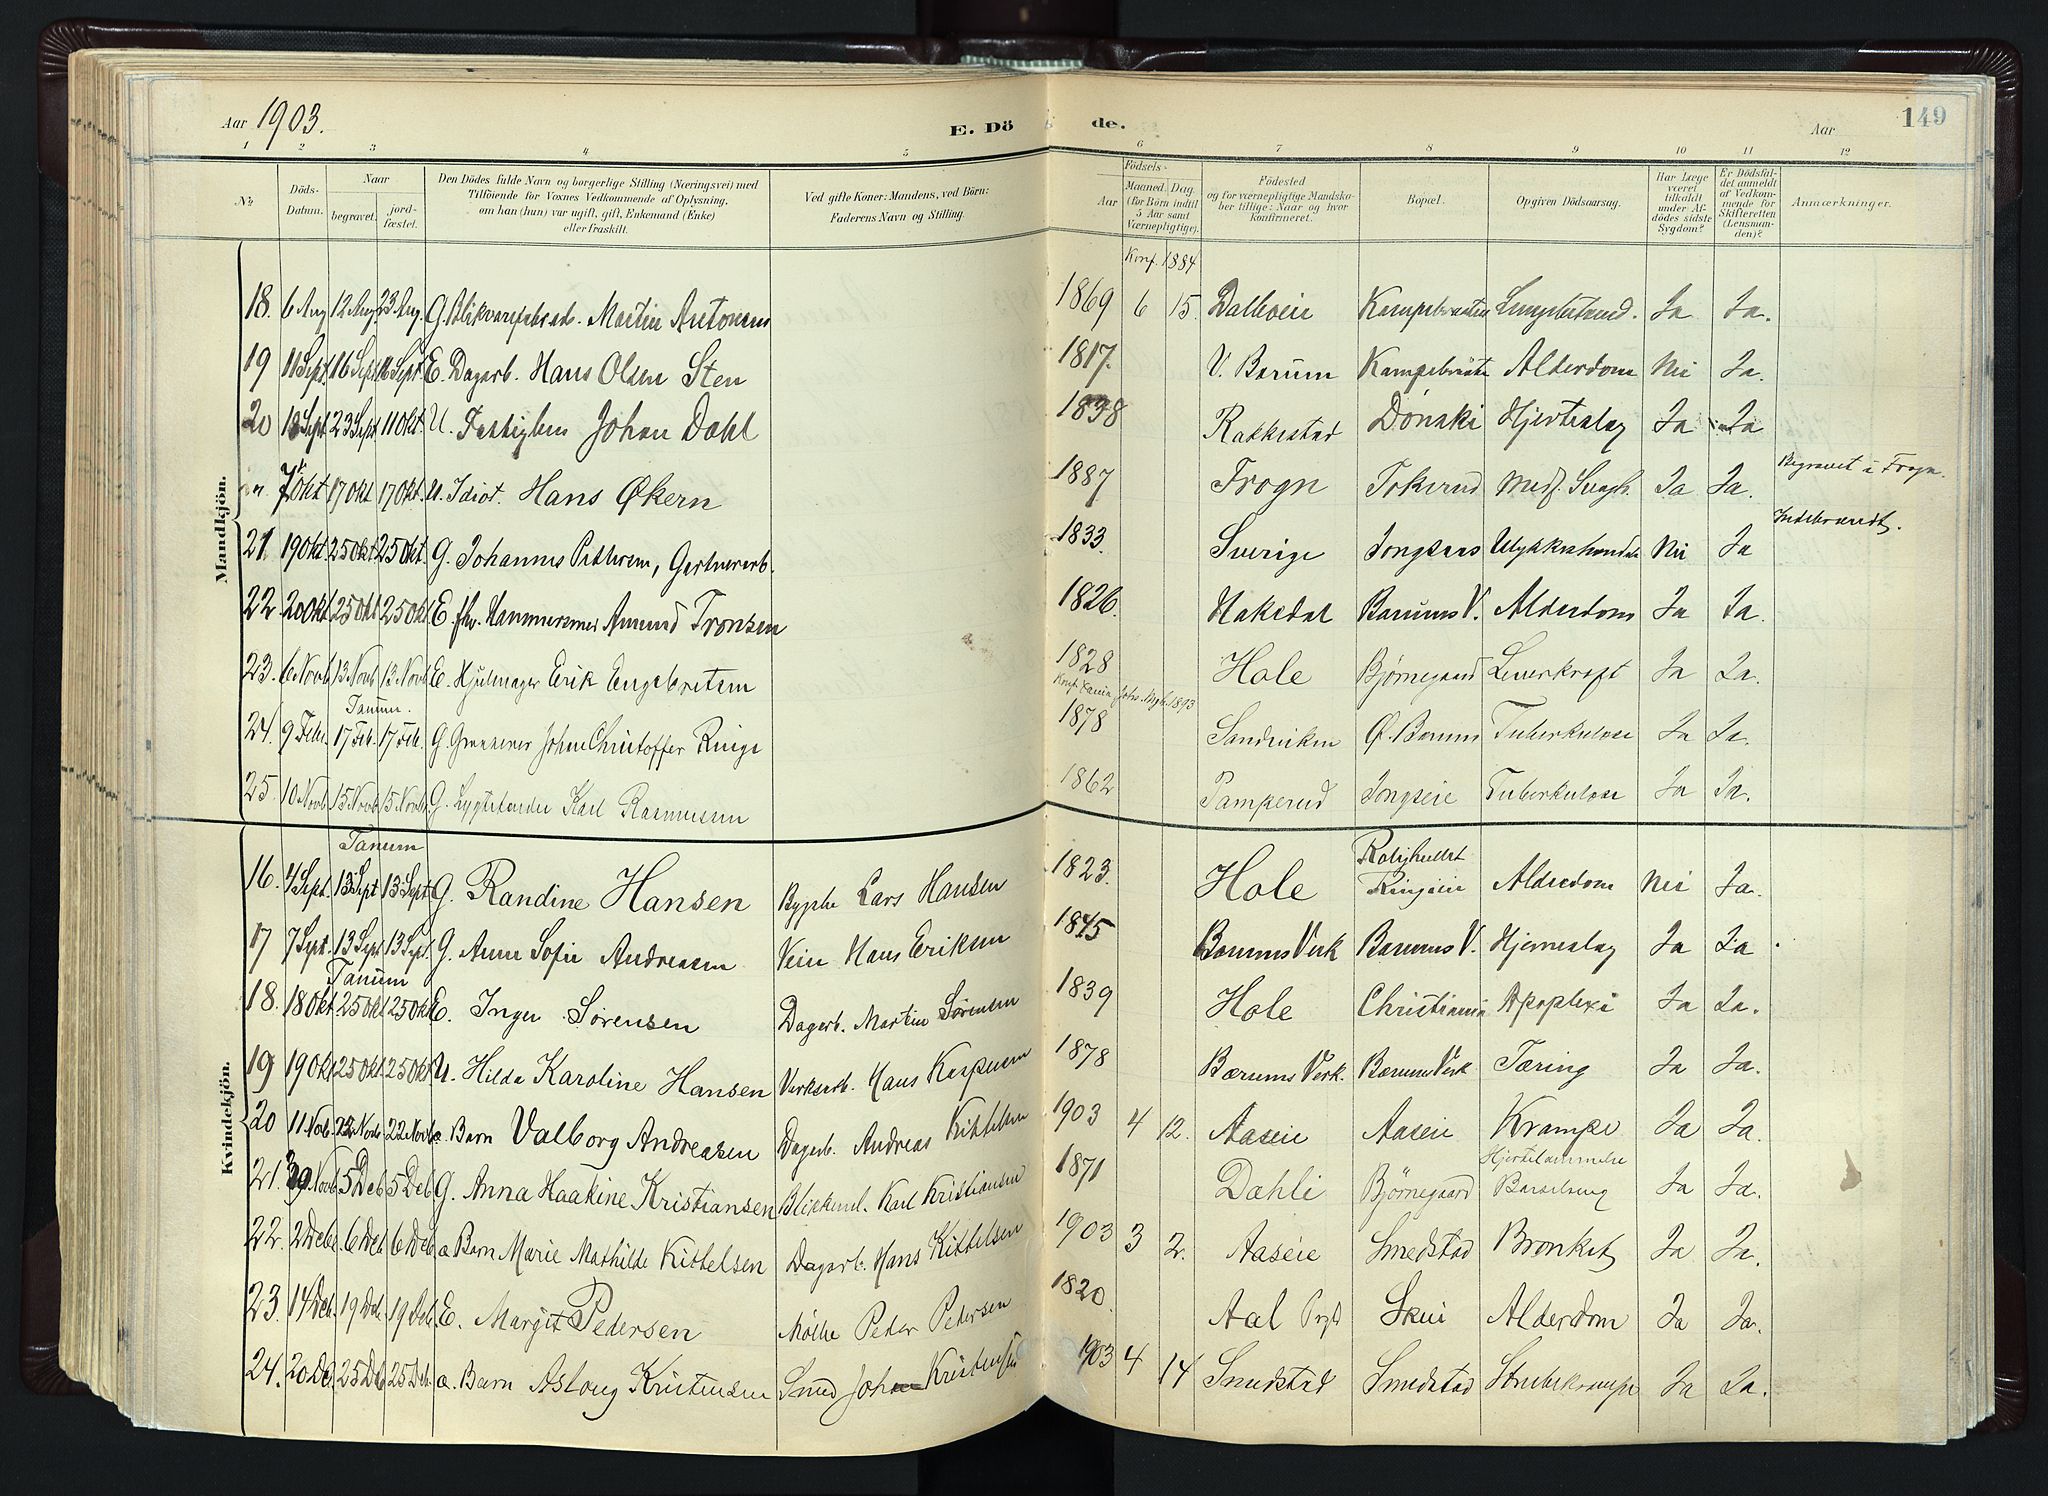 Aar 1903. E. Dö de. Aar 149
1 2 3 4 5 6 7 8 9 10 11 12
No. Döds-Datum. Naar begravet. jord-fæstet. Den Dödes fulde Navn og borgerlige Stilling (Næringsvei) med Tilföiende for Voxnes Vedkommende af Oplysning, om han (hun) var ugift, gift, Enkemand (Enke) eller fraskilt. Ved gifte Koner: Mandens, ved Börn: Faderens Navn og Stilling. Födsels- Aar Maaned. Dag. (for Börn indtil 5 Aar samt Værnepligtige). Födested og for værnepligtige Mandskaber tillige: Naar og hvor konfirmeret. Bopæl. Opgiven Dödsaarsag. Har Læge været tilkaldt under Afdödes sidste Sygdom? Er Dödsfaldet anmeldt af Vedkommende for Skifteretten (Lensmanden)? Anmærkninger.
Mandkjön.
Konf. 1884
18. 6 Aug 12 Aug. 23 Aug. G. Martin Antonsen 1869 6 15. Dalbveie Ja Ja.
19 11 Sept. 16 Sept 16 Sept. E. Dagarb. Hans Olsen Sten 1817. V. Bærum Alderdom Nei Ja.
20 18 Sept. 23 Sept 11 Okt. U. Johan Dahl 1838 Rakkestad Dønski Hjerteslag Ja Ja
7 Okt 17 Okt 17 Okt. U. Idiot. Hans Økern 1887 Frogn Tokerud Medf. Svagh. Ja Ja. Begravet i Frogn.
21. 19 Okt. 25 Okt 25 Okt. G. Johannes Pettersen, Gartnerarb. 1833. Sverige Jongsaas Ulykkeshændelse Nei Ja Indebrændt.
22. 20 Okt 25 Okt 25 Okt. E. fhv. Hammersmed Amund Tronsen 1826. Hakedal Bærums V. Alderdom Ja Ja.
23. 6 Novb. 13 Novb. 13 Novb. E. Hjulmager Erik Engebretsen 1828 Hole Bjørnegaard Leverkræft Ja Ja.
Tanum. 1893
24. 9 Febr. 17 Feb. 17 Feb. G. Johan Christoffer Ringe 1878 Sandviken Ø. Bærum Tuberkulose Ja Ja.
25. 10 Novb. 15 Novb. 15 Novb. G. Lygtetænder Karl Rasmussen 1862 Pamperud Jongseie Tuberkulose Ja Ja.
Kvindekjön.
Tanum Rolighullet
16. 4 Sept. 13 Sept 13 Sept. G. Randine Hansen Lars Hansen 1823. Hole Ringieie Alderdom Nei Ja.
17 7 Sept. 13 Sept 13 Sept. G. Anne Sofie Andreasen Hans Eriksen 1845 Bærums Verk Bærums V. Hjerneslag Ja Ja.
Tanum
18. 18 Okt 25 Okt 25 Okt. E. Inger Sørensen Dagarb. Martin Sørensen 1839 Hole Christiania Apoplexi Ja Ja.
19 19 Okt. 25 Okt. 25 Okt. U. Hilda Karoline Hansen Verksarb. Hans Kaspersen 1878 Bærums Verk. Bærums Verk Tæring Ja Ja.
20 11 Nob. 22 Novb 22 Novb. a. Barn Valborg Andreasen Dagarb. Andreas Kittelsen 1903 4 12. Aaseie Aaseie Krampe Ja Ja.
Hjertelammelse
21. 30 Novb. 5 Deb. 5 Deb. G. Anna Haakine Kristiansen Blikkensl. Karl Kristiansen 1871 Dæhli Bjørnegaard Barselseng Ja Ja.
22. 2 Debr. 6 Deb 6 Deb. a Barn Marie Mathilde Kittelsen Dagarb. Hans Kittelsen 1903 3 2. Aaseie Smedstad Bronkit Ja Ja.
23. 14 Deb. 19 Deb. 19 Deb. E. Margit Pedersen Mölle Peder Pedersen 1820. Aal Skui Alderdom Ja Ja.
24. 20 Deb. 25 Deb 25 Deb. a. Barn Aslaug Kristensen Smed Johan Kristensen 1903 4 14 Smedstad Smedstad Strubekrampe Ja Ja.